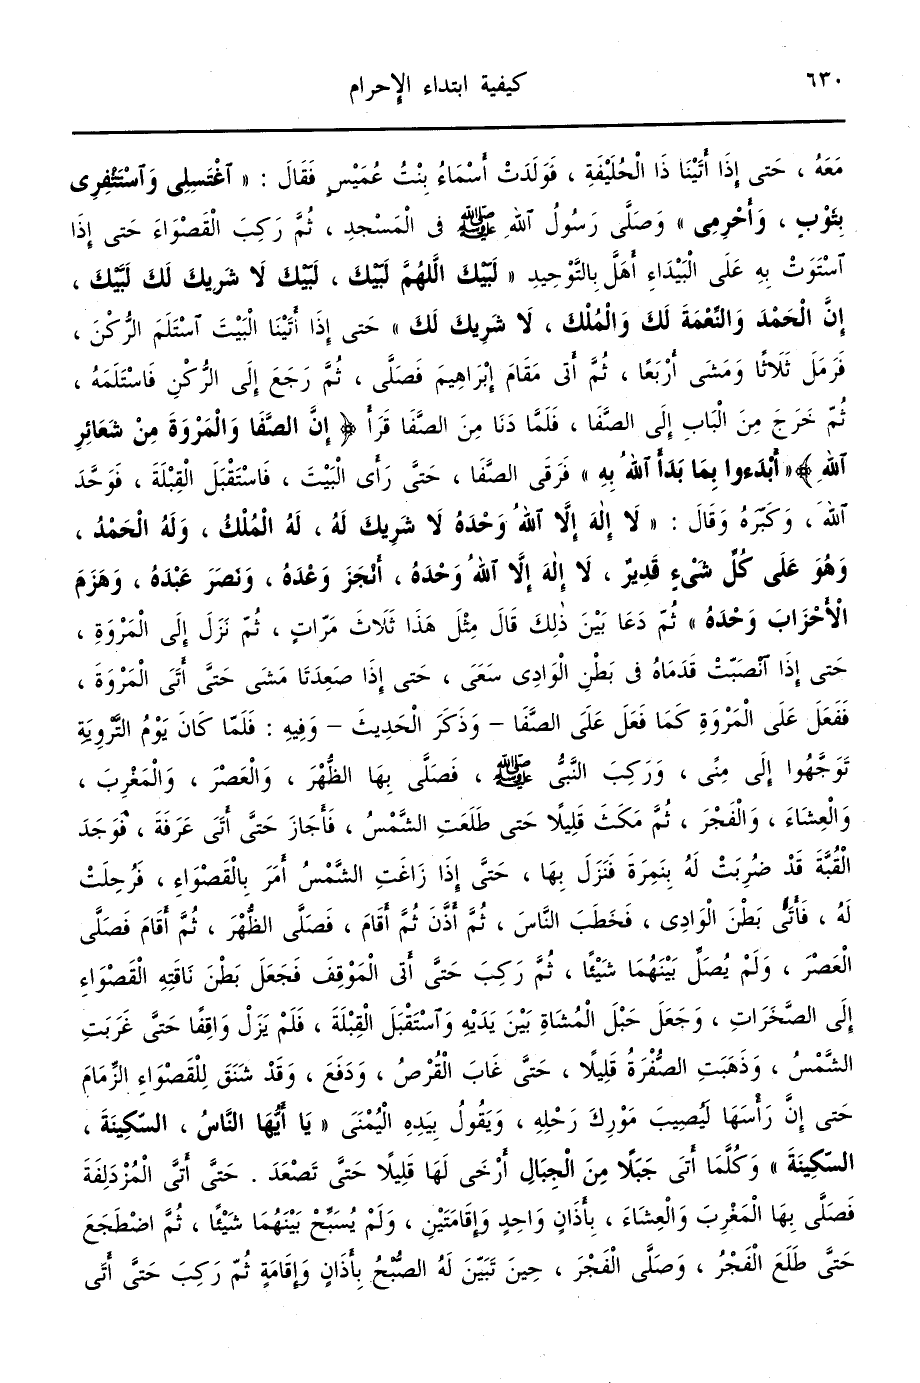 ٦٣٠
كيفية ابتداء الإحرام
مَعَهُ ، حَتى إِذَا أَتَيْنَا ذَا الْحُلَيْفَةِ ، فَوَلَدَتْ أَسْمَاءُ بِنْتُ عُمَيْسٍ فَقَالَ : « آغْتَسِلِى وَآسْتَثْفِرِى
بِثَوْبٍ ، وَأَحْرِمِى » وَصَلَّى رَسُولُ آللهِ ﷺ فى الْمَسْجِدِ ، ثُمَّ رَكِبَ الْقَصْوَاءَ حَتى إِذَا
آسْتَوَتْ بِهِ عَلَى الْبَيْدَاءِ أَهَلَّ بِالتَّوْحِيدِ « لَبَّيْكَ اللَّهُمَّ لَبَّيْكَ ، لَبَّيْكَ لَا شَرِيكَ لَكَ لَبَّيْكَ ،
إِنَّ الْحَمْدَ وَالنِّعْمَةَ لَكَ وَالْمُلْكَ ، لَا شَرِيكَ لَكَ » حَتى إِذَا أَتَيْنَا الْبَيْتَ آسْتَلَمَ الرُّكْنَ ،
فَرَمَلَ ثَلَاثًا وَمَشَى أَرْبَعًا ، ثُمَّ أَتى مَقَامَ إِبْرَاهِيمَ فَصَلَّى ، ثُمَّ رَجَعَ إِلَى الرُّكْنِ فَاسْتَلَمَهُ ،
ثُمّ خَرَجَ مِنَ الْبَابِ إِلَى الصَّفَا ، فَلَمَّا دَنَا مِنَ الصَّفَا قَرَأَ ﴿ إِنَّ الصَّفَا وَالْمَرْوَةَ مِنْ شَعَائِرِ
آللهِ ﴾ « أَبْدَءوا بِمَا بَدَأَ آللهُ بِهِ » فَرَقَى الصَّفَا ، حَتَّى رَأَى الْبَيْتَ ، فَاسْتَقْبَلَ الْقِبْلَةَ ، فَوَحَّدَ
آللهَ ، وَكَبَّرَهُ وَقَالَ : « لَا إِلٰهَ إِلَّا آللهُ وَحْدَهُ لَا شَرِيكَ لَهُ ، لَهُ الْمُلْكُ ، وَلَهُ الْحَمْدُ ،
وَهُوَ عَلَى كُلِّ شَىْءٍ قَدِيرٌ ، لَا إِلٰهَ إِلَّا آللهُ وَحْدَهُ ، أَنْجَزَ وَعْدَهُ ، وَنَصَرَ عَبْدَهُ ، وَهَزَمَ
الْأَحْزَابَ وَحْدَهُ » ثُمَّ دَعَا بَيْنَ ذٰلِكَ قَالَ مِثْلَ هَذَا ثَلَاثَ مَرّاتٍ ، ثُمّ نَزَلَ إِلَى الْمَرْوَةِ ،
حَتى إِذَا آنْصَبَّتْ قَدَمَاهُ فى بَطْنِ الْوَادِى سَعَى ، حَتى إِذَا صَعِدَتَا مَشى حَتَّى أَتَى الْمَرْوَةَ ،
فَفَعَلَ عَلَى الْمَرْوَةِ كَمَا فَعَلَ عَلَى الصَّفَا – وَذَكَرَ الْحَدِيثَ – وَفِيهِ : فَلَمّا كَانَ يَوْمُ التَّرْوِيَةِ
تَوَجَّهُوا إِلَى مِنًى ، وَرَكِبَ النَّبىُّ ﷺ ، فَصَلَّى بِهَا الظُّهْرَ ، وَالْعَصْرَ ، وَالْمَغْرِبَ ،
وَالْعِشَاءَ ، وَالْفَجْرَ ، ثُمَّ مَكَثَ قَلِيلًا حَتى طَلَعَتِ الشَّمْسُ ، فَأَجَازَ حَتَّى أَتَى عَرَفَةَ ، فَوَجَدَ
الْقُبَّةَ قَدْ ضُرِبَتْ لَهُ بِنَمِرَةَ فَنَزَلَ بِهَا ، حَتَّى إِذَا زَاغَتِ الشَّمْسُ أَمَرَ بِالْقَصْوَاءِ ، فَرُحِلَتْ
لَهُ ، فَأَتَى بَطْنَ الْوَادِى ، فَخَطَبَ النَّاسَ ، ثُمَّ أَذَّنَ ثُمَّ أَقَامَ ، فَصَلَّى الظُّهْرَ ، ثُمَّ أَقَامَ فَصَلَّى
الْعَصْرَ ، وَلَمْ يُصَلِّ بَيْنَهُمَا شَيْئًا ، ثُمَّ رَكِبَ حَتَّى أَتى الْمَوْقِفَ فَجَعَلَ بَطْنَ نَاقَتِهِ الْقَصْوَاءِ
إِلَى الصَّخَرَاتِ ، وَجَعَلَ حَبْلَ الْمُشَاةِ بَيْنَ يَدَيْهِ وَآسْتَقْبَلَ الْقِبْلَةَ ، فَلَمْ يَزَلْ وَاقِفًا حَتَّى غَرَبَتِ
الشَّمْسُ ، وَذَهَبَتِ الصُّفْرَةُ قَلِيلًا ، حَتَّى غَابَ الْقُرْصُ ، وَدَفَعَ ، وَقَدْ شَنَقَ لِلْقَصْوَاءِ الزِّمَامَ
حَتى إِنَّ رَأْسَهَا لَيُصِيبَ مَوْرِكَ رَحْلِهِ ، وَيَقُولُ بِيَدِهِ الْيُمْنَى « يَا أَيُّهَا النَّاسُ ، السّكِينَةَ ،
السّكِينَةَ » وَكُلَّمَا أَتى جَبَلًا مِنَ الْجِبَالِ أَرْخَى لَهَا قَلِيلًا حَتَّى تَصْعَدَ . حَتَّى أَتَّى الْمُزْدَلِفَةَ
فَصَلَّى بِهَا الْمَغْرِبَ وَالْعِشَاءَ ، بِأَذَانٍ وَاحِدٍ وَإِقَامَتَيْنِ ، وَلَمْ يُسَبِّحْ بَيْنَهُمَا شَيْئًا ، ثُمَّ اضْطَجَعَ
حَتَّى طَلَعَ الْفَجْرُ ، وَصَلَّى الْفَجْرَ ، حِينَ تَبَيّنَ لَهُ الصُّبْحُ بِأَذَانٍ وَإِقَامَةٍ ثُمّ رَكِبَ حَتَّى أَتَى